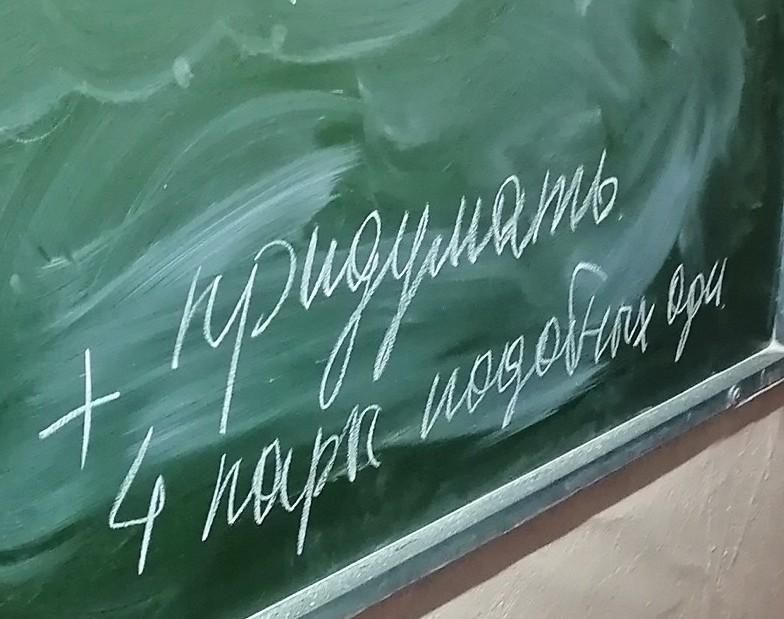 + придумать
4 пары подобных одн